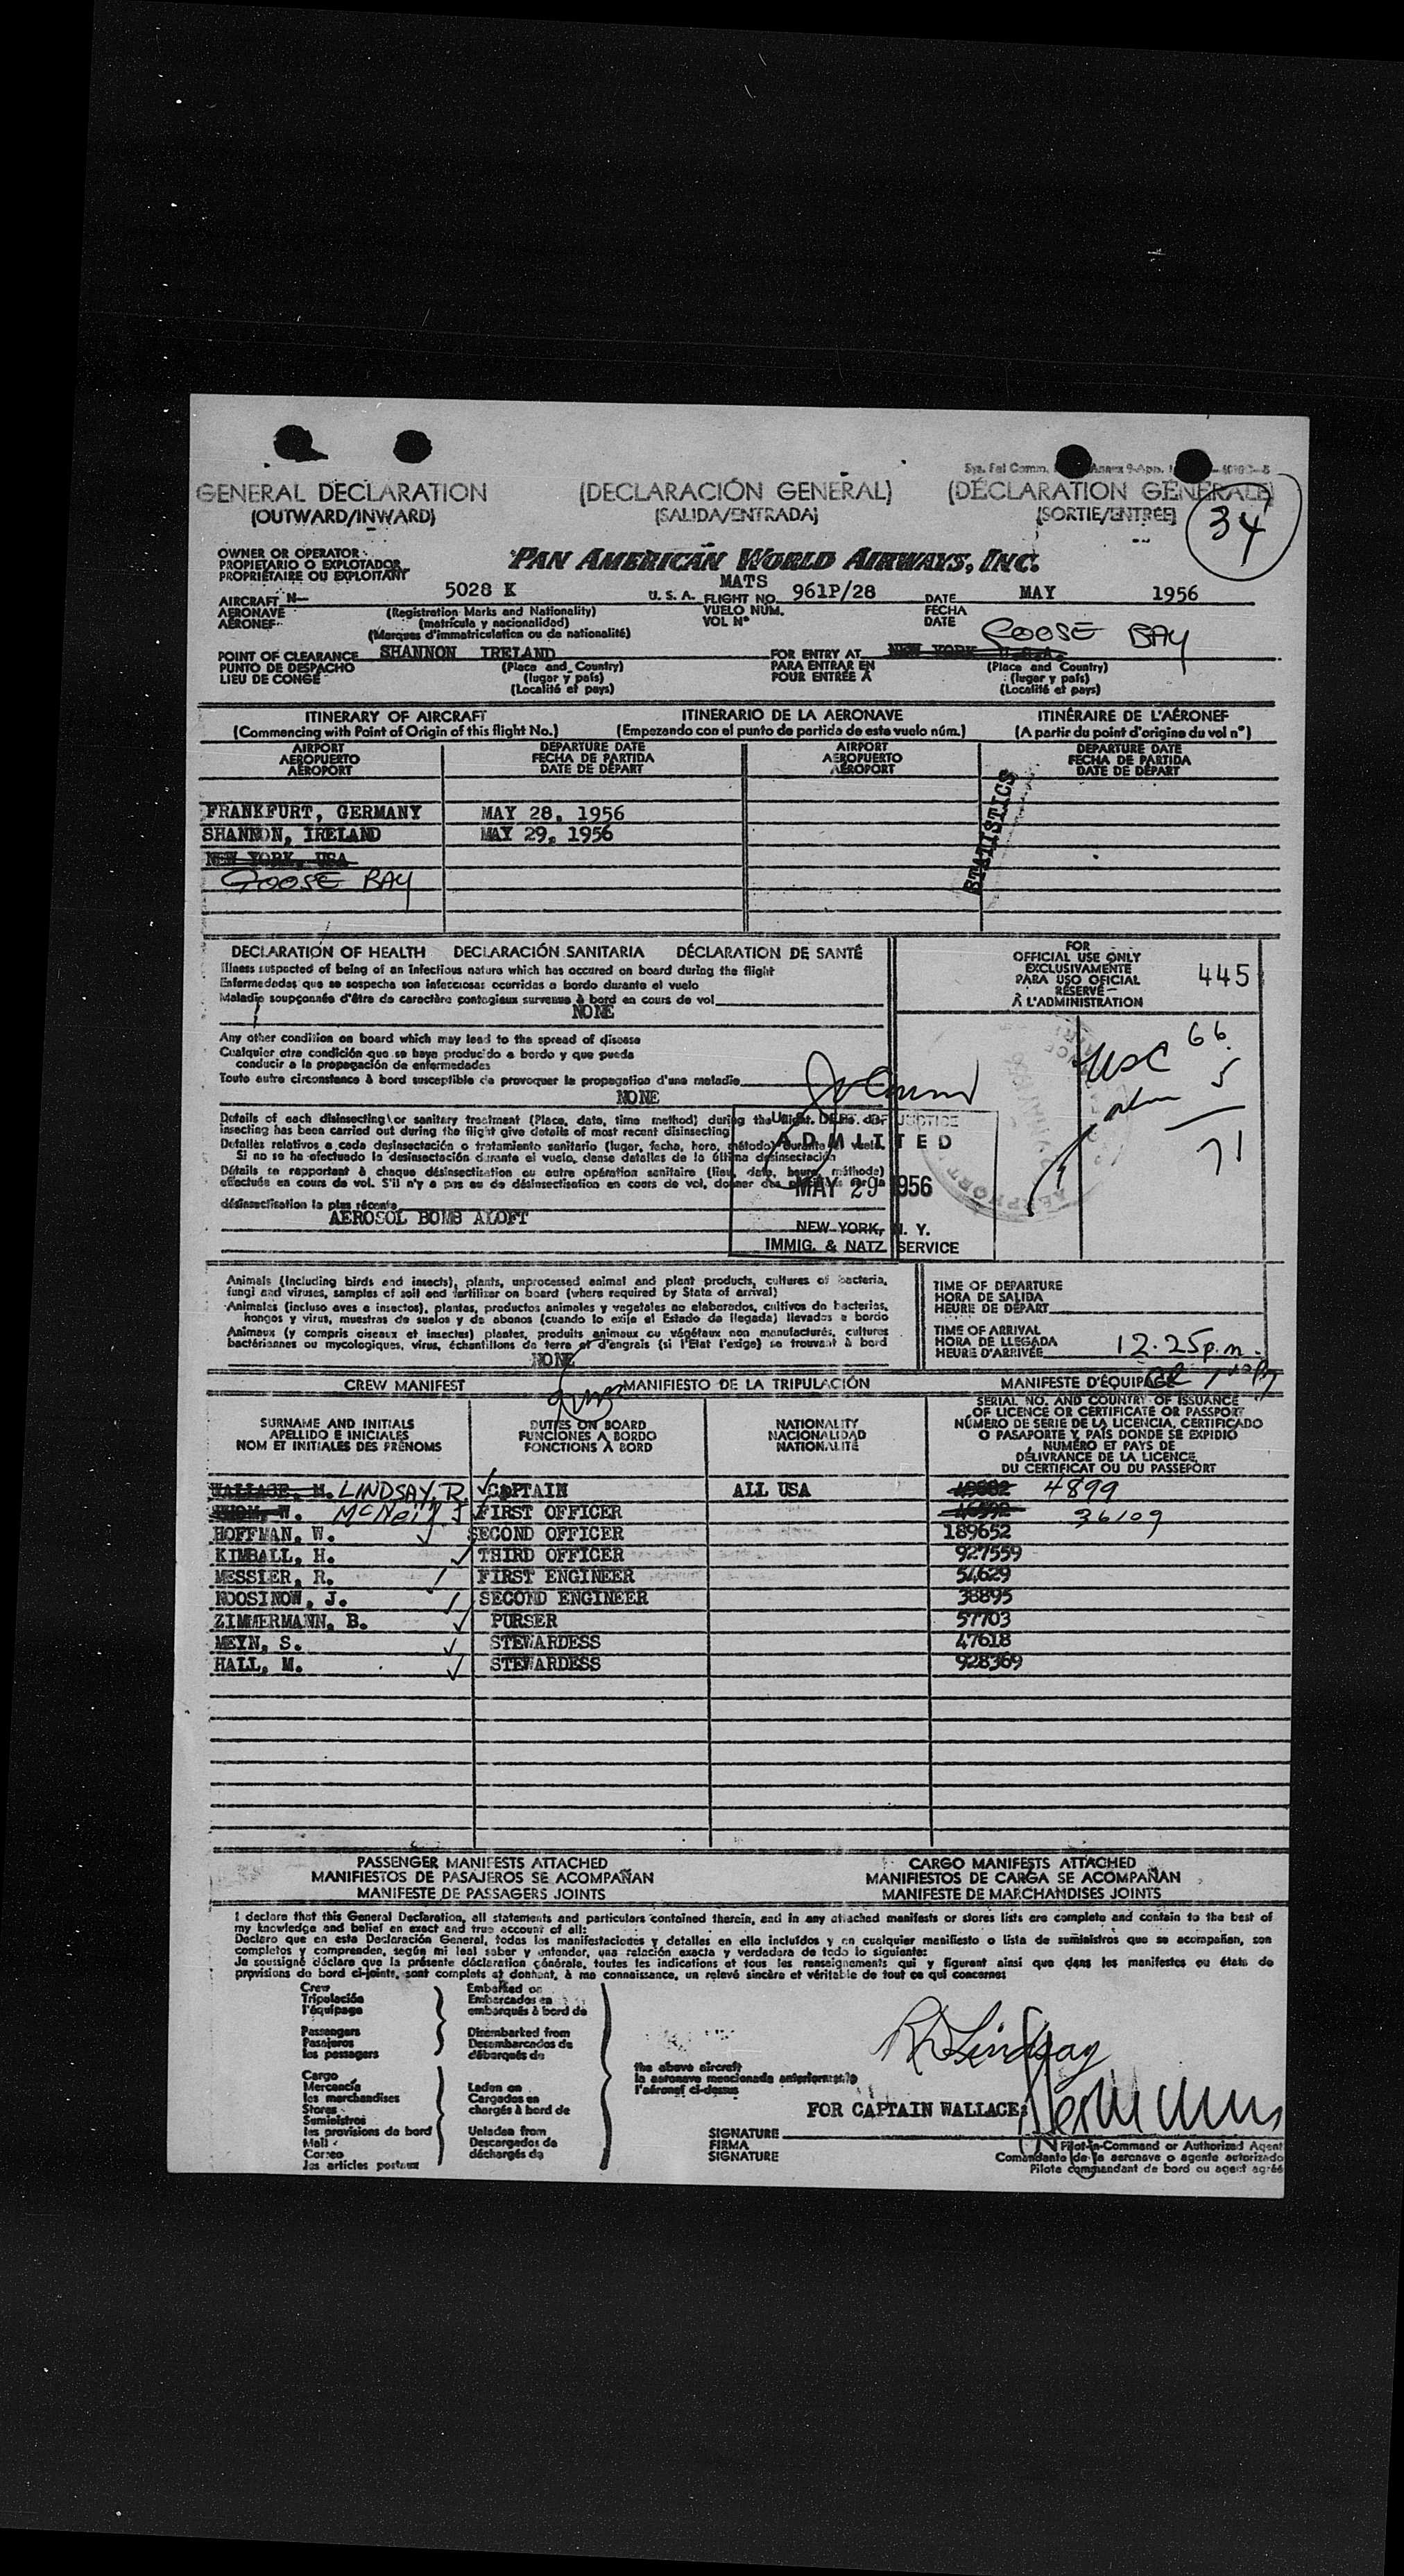 GENERAL DECLARATION (DECLARACIÓN GENERAL) (DÉCLARATION GÉNÉRALE)
(OUTWARD/INWARD) (SALIDA/ENTRADA) (SORTIE/ENTRÉE)
34
OWNER OR OPERATOR
PROPIETARIO O EXPLOTADOR
PROPRIÉTAIRE OU EXPLOITANT
PAN AMERICAN WORLD AIRWAYS, INC.
MATS
AIRCRAFT N— 5028 K U. S. A. FLIGHT NO. 961P/28 DATE MAY 1956
AERONAVE (Registration Marks and Nationality) VUELO NÚM. FECHA
AÉRONEF (matrícula y nacionalidad) VOL Nº DATE
(Marques d'immatriculation ou de nationalité)
GOOSE BAY
POINT OF CLEARANCE SHANNON IRELAND FOR ENTRY AT NEW YORK U.S.A.
PUNTO DE DESPACHO (Place and Country) PARA ENTRAR EN (Place and Country)
LIEU DE CONGÉ (lugar y país) POUR ENTRÉE À (lugar y país)
(Localité et pays) (Localité et pays)
ITINERARY OF AIRCRAFT ITINERARIO DE LA AERONAVE ITINÉRAIRE DE L'AÉRONEF
(Commencing with Point of Origin of this flight No.) (Empezando con el punto de partida de este vuelo núm.) (A partir du point d'origine du vol nº)
AIRPORT DEPARTURE DATE AIRPORT DEPARTURE DATE
AEROPUERTO FECHA DE PARTIDA AEROPUERTO FECHA DE PARTIDA
AÉROPORT DATE DE DÉPART AÉROPORT DATE DE DÉPART
STATISTICS
FRANKFURT, GERMANY MAY 28, 1956
SHANNON, IRELAND MAY 29, 1956
NEW YORK, USA
GOOSE BAY
DECLARATION OF HEALTH DECLARACIÓN SANITARIA DÉCLARATION DE SANTÉ
Illness suspected of being of an infectious nature which has occured on board during the flight
Enfermedades que se sospecha son infecciosas ocurridas a bordo durante el vuelo
Maladie soupçonnée d'être de caractère contagieux survenue à bord en cours de vol
NONE
FOR
OFFICIAL USE ONLY
EXCLUSIVAMENTE
PARA USO OFICIAL
RÉSERVÉ
À L'ADMINISTRATION
445
Any other condition on board which may lead to the spread of disease
Cualquier otra condición que se haya producido a bordo y que pueda
conducir a la propagación de enfermedades
Toute autre circonstance à bord susceptible de provoquer la propagation d'une maladie
NONE
USC 66
5
71
Details of each disinsecting or sanitary treatment (Place, date, time method) during the flight.
insecting has been carried out during the flight give details of most recent disinsecting
Detalles relativos a cada desinsectación o tratamiento sanitario (lugar, fecha, hora, método) durante el vuelo.
Si no se ha efectuado la desinsectación durante el vuelo, dense detalles de la última desinsectación
Détails se rapportant à chaque désinsectisation ou autre opération sanitaire (lieu, date, heure, méthode)
effectuée en cours de vol. S'il n'y a pas eu de désinsectisation en cours de vol, donner des
désinsectisation la plus récente
AEROSOL BOMB ALOFT
U.S. DEPT. OF JUSTICE
ADMITTED
MAY 29 1956
NEW YORK, N. Y.
IMMIG. & NATZ SERVICE
Animals (including birds and insects), plants, unprocessed animal and plant products, cultures of bacteria,
fungi and viruses, samples of soil and fertilizer on board (where required by State of arrival)
Animales (incluso aves e insectos), plantas, productos animales y vegetales no elaborados, cultivos de bacterias,
hongos y virus, muestras de suelos y de abonos (cuando lo exija el Estado de llegada) llevados a bordo
Animaux (y compris oiseaux et insectes) plantes, produits animaux ou végétaux non manufacturés, cultures
bactériennes ou mycologiques, virus, échantillons de terre et d'engrais (si l'État l'exige) se trouvant à bord
NONE
TIME OF DEPARTURE
HORA DE SALIDA
HEURE DE DÉPART
TIME OF ARRIVAL
HORA DE LLEGADA
HEURE D'ARRIVÉE 12.25 p.m.
CREW MANIFEST MANIFIESTO DE LA TRIPULACIÓN MANIFESTE D'ÉQUIPAGE
SURNAME AND INITIALS
APELLIDO E INICIALES
NOM ET INITIALES DES PRÉNOMS
DUTIES ON BOARD
FUNCIONES A BORDO
FONCTIONS À BORD
NATIONALITY
NACIONALIDAD
NATIONALITÉ
SERIAL NO. AND COUNTRY OF ISSUANCE
OF LICENCE OR CERTIFICATE OR PASSPORT
NÚMERO DE SERIE DE LA LICENCIA, CERTIFICADO
O PASAPORTE Y PAÍS DONDE SE EXPIDIÓ
NUMÉRO ET PAYS DE
DÉLIVRANCE DE LA LICENCE,
DU CERTIFICAT OU DU PASSEPORT
WALLACE, M. LINDSAY, R. CAPTAIN ALL USA 4899
W. McNeill J FIRST OFFICER 36109
HOFFMAN, W. SECOND OFFICER 189652
KIMBALL, H. THIRD OFFICER 927559
MESSIER, R. FIRST ENGINEER 54629
ROOSINOW, J. SECOND ENGINEER 38895
ZIMMERMANN, B. PURSER 57703
MEYN, S. STEWARDESS 47618
HALL, M. STEWARDESS 928369
PASSENGER MANIFESTS ATTACHED CARGO MANIFESTS ATTACHED
MANIFIESTOS DE PASAJEROS SE ACOMPAÑAN MANIFIESTOS DE CARGA SE ACOMPAÑAN
MANIFESTE DE PASSAGERS JOINTS MANIFESTE DE MARCHANDISES JOINTS
I declare that this General Declaration, all statements and particulars contained therein, and in any attached manifests or stores lists are complete and contain to the best of
my knowledge and belief an exact and true account of all:
Declaro que en esta Declaración General, todas las manifestaciones y detalles en ella incluídos y en cualquier manifiesto o lista de suministros que se acompañan, son
completos y comprenden, según mi leal saber y entender, una relación exacta y verdadera de todo lo siguiente:
Je soussigné déclare que la présente déclaration générale, toutes les indications et tous les renseignements qui y figurent ainsi que dans les manifestes ou états de
provisions de bord ci-joints, sont complets et donnent, à ma connaissance, un relevé sincère et véritable de tout ce qui concerne:
Crew Embarked on
Tripulación Embarcados en
l'équipage embarqués à bord de
Passengers Disembarked from
Pasajeros Desembarcados de
les passagers débarqués de
Cargo
Mercancía Laden on
les marchandises Cargados en
Stores chargés à bord de
Suministros
les provisions de bord Unladen from
Mail Descargados de
Correo déchargés de
les articles postaux
the above aircraft
la aeronave mencionada anteriormente
l'aéronef ci-dessus
R D Lindsay
FOR CAPTAIN WALLACE:
SIGNATURE
FIRMA
SIGNATURE
Pilot-in-Command or Authorized Agent
Comandante de la aeronave o agente autorizado
Pilote commandant de bord ou agent agréé